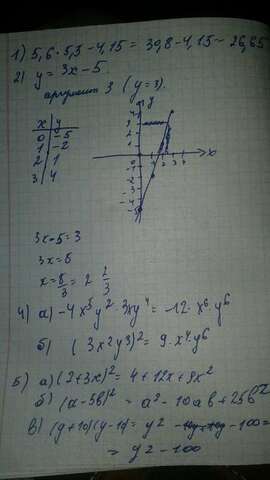 1) 5,6 · 5,5 - 4,15 = 30,8 - 4,15 = 26,65
2) y = 3x - 5.
аргумента 3 (y = 3).
x y
0 -5
1 -2
2 1
3 4
3x - 5 = 3
3x = 8
x = 8/3 = 2 2/3
4) а) -4x⁵y² · 3xy⁴ = -12 · x⁶ y⁶
б) (3x2y3)² = 9 · x⁴ · y⁶
5) а) (2+3x)² = 4 + 12x + 9x²
б) (a-5b)² = a² - 10ab + 25b²
в) (y+10)(y-10) = y2 - 100 =
= y2 - 100